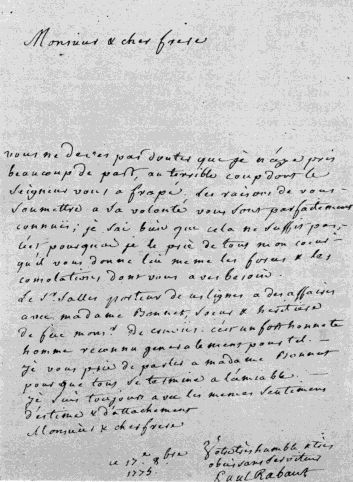 Monsieur & cher frere
vous ne deves pas douter que je n'aye pris
beaucoup de part, au terrible coup dont le
seigneur vous a frapé. Les raisons de vous
soumettre a sa volonté vous sont parfaitement
connues; je sai bien que cela ne suffit pas,
c'est pourquoi je le prie de tout mon cœur
qu'il vous donne lui meme les forces & les
consolations dont vous aves besoin.
Le Sr. Salles porteur de ces lignes a des affaires
avec madame Bonnet, soeur & heritiere
de feu monsr. de c'est un fort honnete
homme reconnu generalement pour tel. —
Je vous prie de parler a madame Bonnet
pour que tout se termine a l'amiable. —
Je suis toujours avec les memes sentimens
d'estime & d'attachement
Monsieur & cher frere
ce 17e 8bre
1775.
Votre tres humble & tres
obeissant serviteur
Paul Rabaut